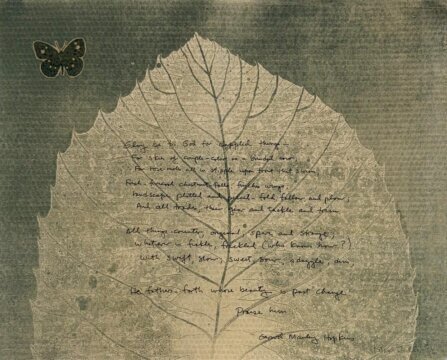 Glory be to God for dappled things—
For skies of couple-color as a brinded cow;
For rose-moles all in stipple upon trout that swim;
Fresh-firecoal chestnut-falls; finches' wings;
Landscape plotted and pieced—fold, fallow and plow;
And all trades, their gear and tackle and trim.
All things counter, original, spare and strange;
Whatever is fickle, freckled (who knows how?)
With swift, slow; sweet, sour; adazzle, dim;
He fathers-forth whose beauty is past change
Praise him
Gerard Manley Hopkins